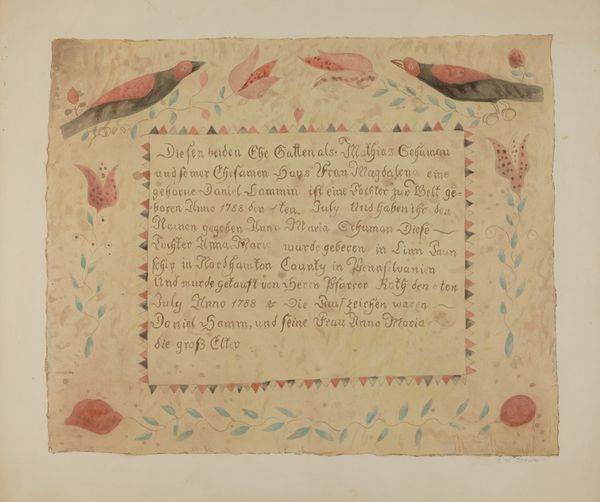 Diesen beiden Ehe Gatten als Mathias Schuman
und seiner Ehesamen Haus Frau Magdalena eine
geborne Daniel Hammin ist eine Tochter zur Welt ge-
boren Anno 1788 den ten July Und haben ihr den
Namen gegeben Anna Maria Schuman Diese
Tochter Anna Maria wurde geboren in Linn Taun
schip in Nordhamton County in Pennsilvanien
Und wurde getauft von Herrn Pfarrer Roth den ten
July Anno 1788 & Die Taufzeichen waren
Daniel Hamm, und seine Frau Anno Maria
die groß Elter